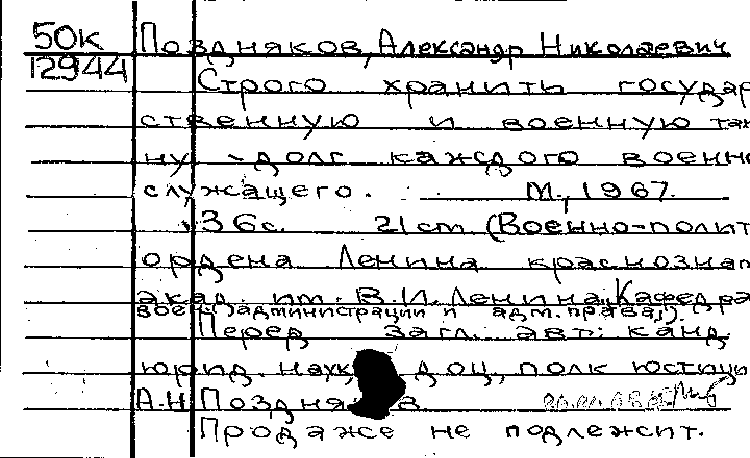 50к Поздняков, Александр Николаевич
12944 Строго хранить государ
ственную и военную тай
ну - долг каждого военно
служащего. М., 1967.
36с. 21cm (Военно-полит
ордена Ленина краснознам
акад. им. В.И. Ленина, Кафедра
воен администрации и адм. права).
Перед загл. авт: канд
юрид. наук, доц, полк юстиции
А.Н Поздня в.
Продаже не подлежит.